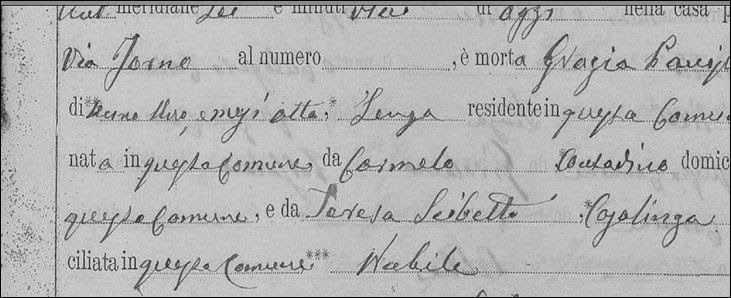 Ant meridiane sei e minuti di oggi nella casa p
Via Forno al numero , è morta Grazia
di* uno, e mesi otto,* Senza residente in questo Comune
nata in questo Comune da Carmelo *Contadino domic
questo Comune, e da Teresa Scibetta ,*Casalinga
ciliata in questo Comune *** Nubile